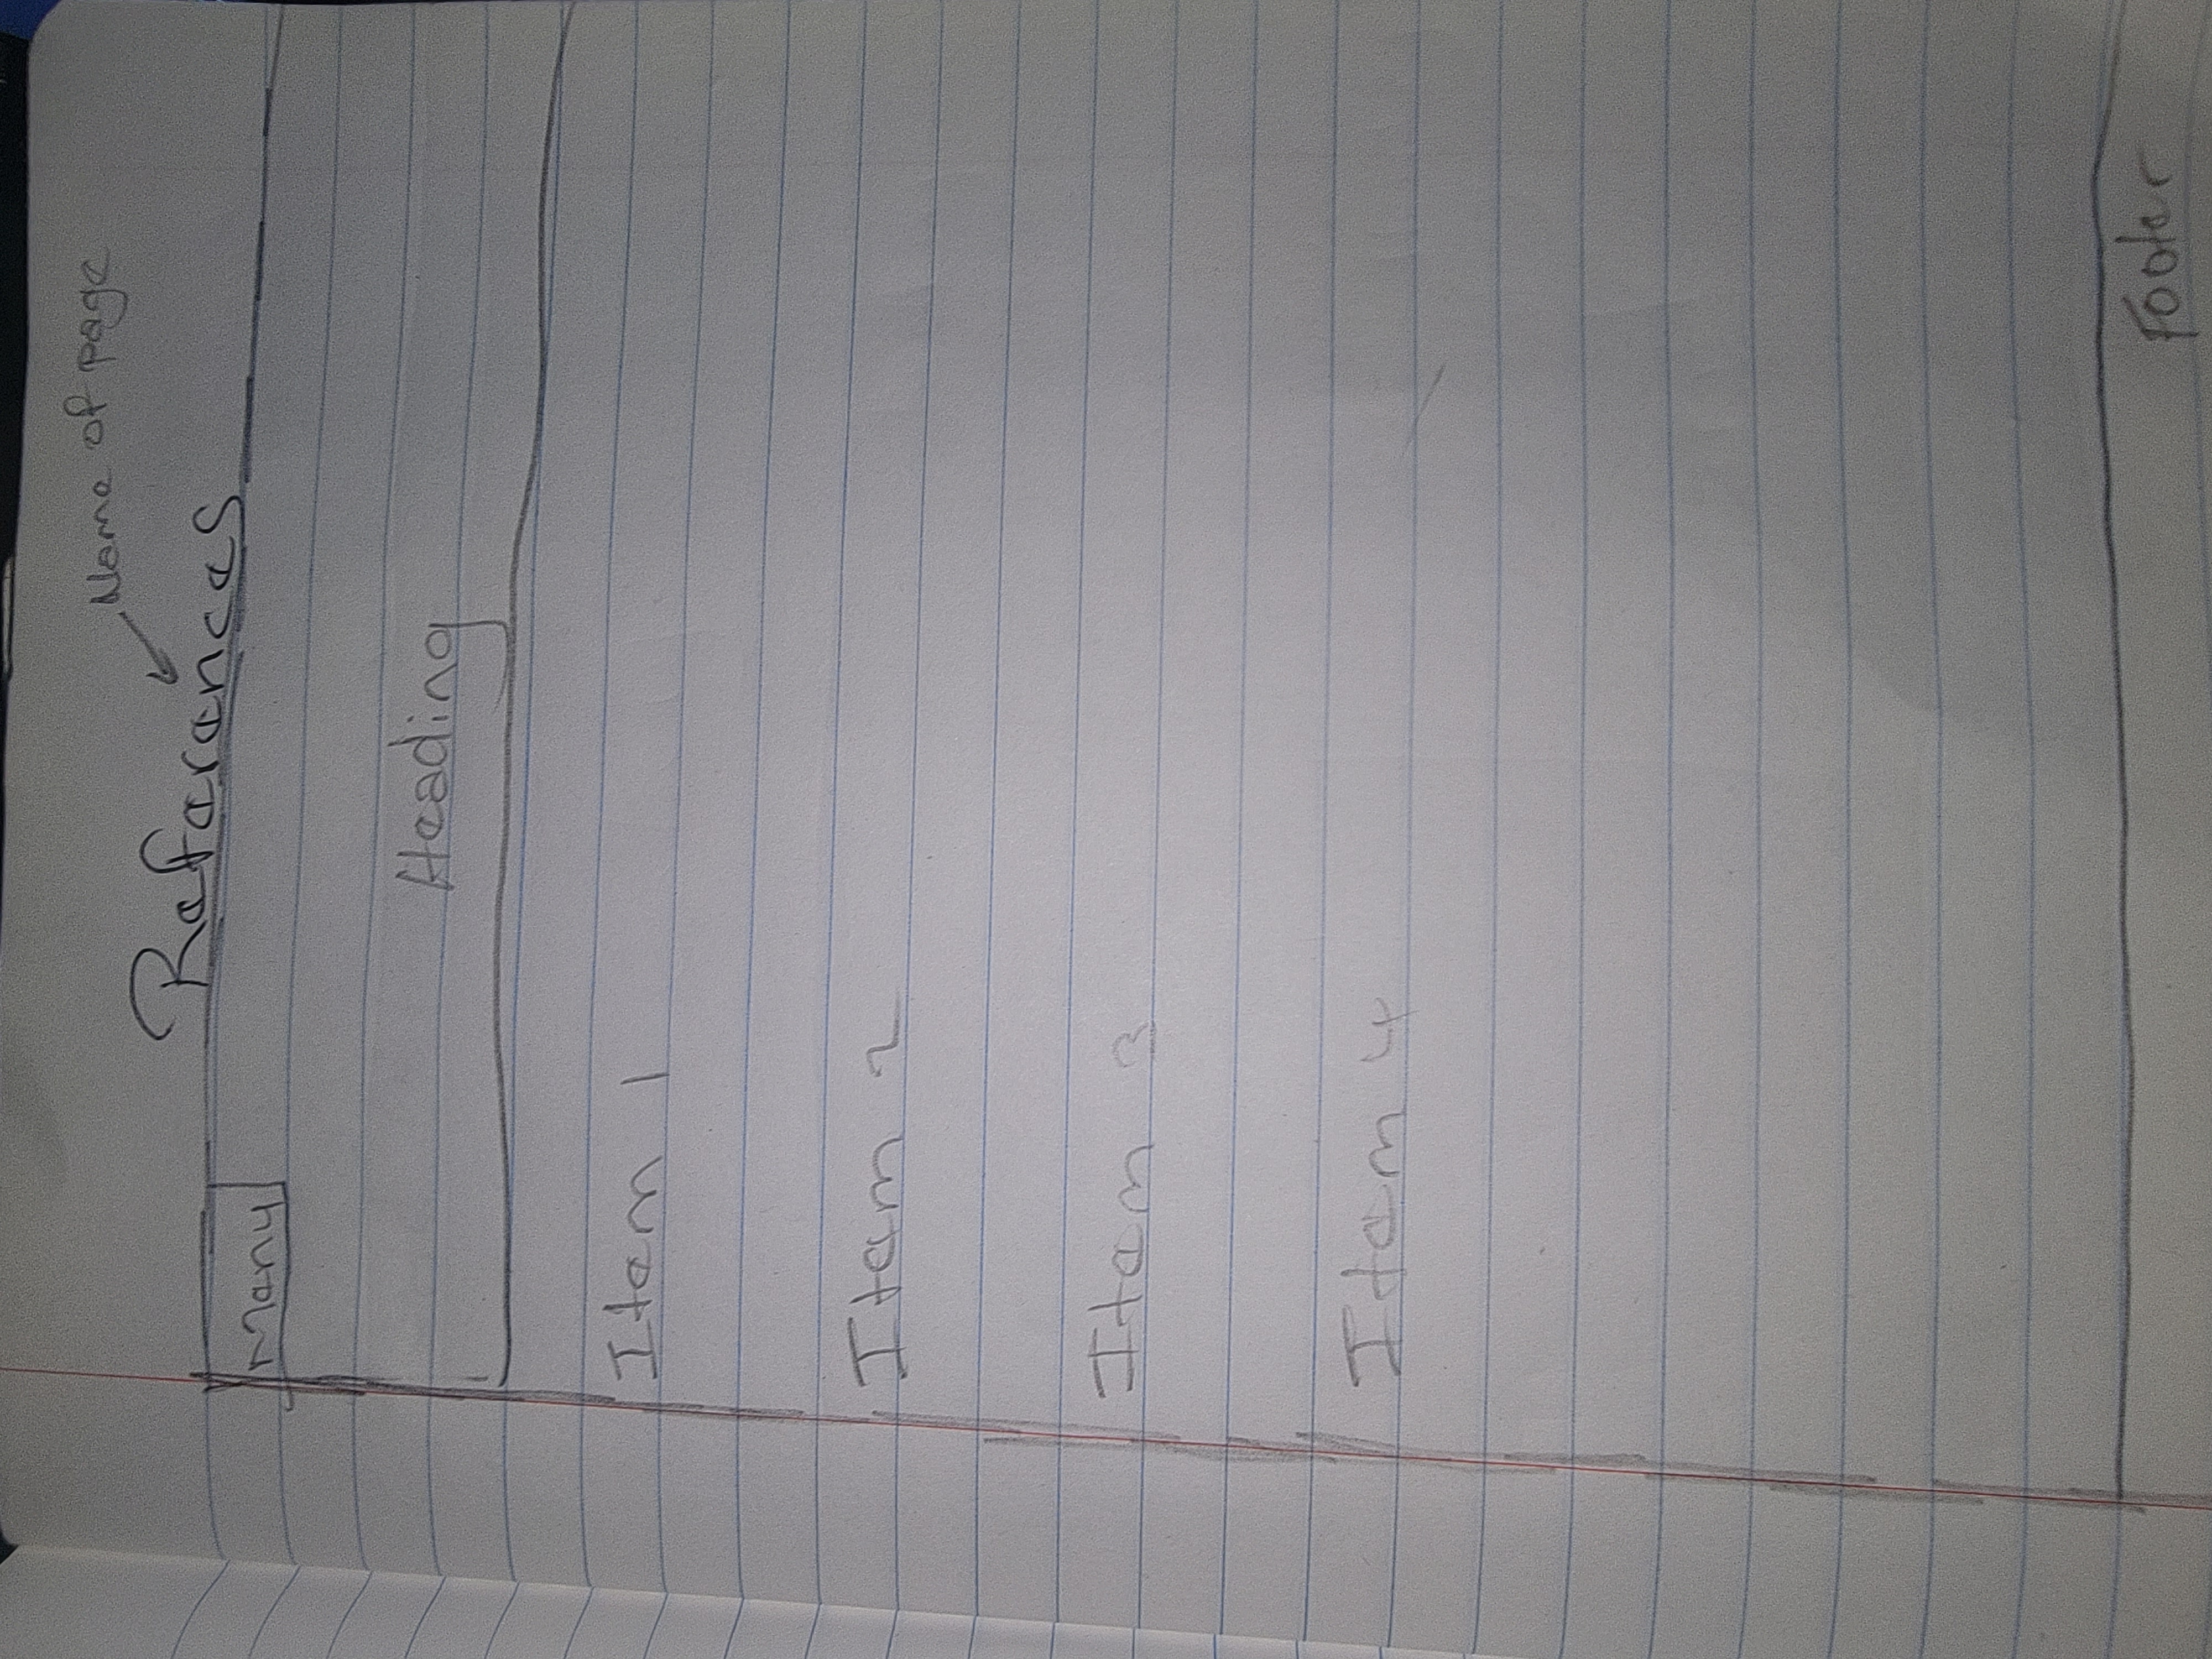 Name of page
References
Menu
Heading
Item 1
Item 2
Item 3
Item 4
Footer